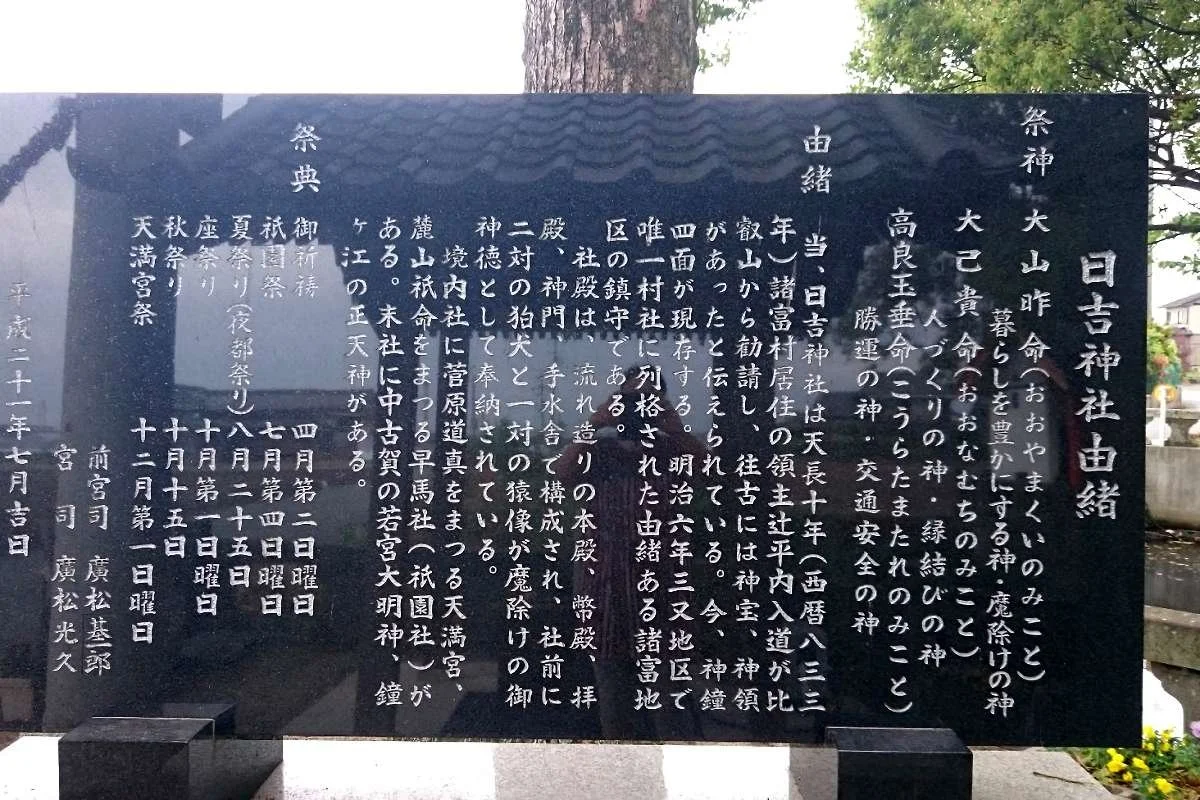 日吉神社由緒
祭神
大山咋命(おおやまくいのみこと)
暮らしを豊かにする神・魔除けの神
大己貴命(おおなむちのみこと)
人づくりの神・縁結びの神
高良玉垂命(こうらたまたれのみこと)
勝運の神・交通安全の神
由緒
当、日吉神社は天長十年(西暦八三三
年)諸富村居住の領主辻平内入道が比
叡山から勧請し、往古には神宝、神領
があったと伝えられている。今、神鐘
四面が現存する。明治六年三又地区で
唯一村社に列格された由緒ある諸富地
区の鎮守である。
社殿は、流れ造りの本殿、幣殿、拝
殿、神門、手水舎で構成され、社前に
二対の狛犬と一対の猿像が魔除けの御
神徳として奉納されている。
境内社に菅原道真をまつる天満宮、
麓山祇命をまつる早馬社(祇園社)が
ある。末社に中古賀の若宮大明神、鐘
ヶ江の正天神がある。
祭典
御祈祷 四月第二日曜日
祇園祭 七月第四日曜日
夏祭り(夜都祭り) 八月二十五日
座祭り 十月第一日曜日
秋祭り 十月十五日
天満宮祭 十二月第一日曜日
前宮司 廣松基一郎
宮司 廣松光久
平成二十一年七月吉日